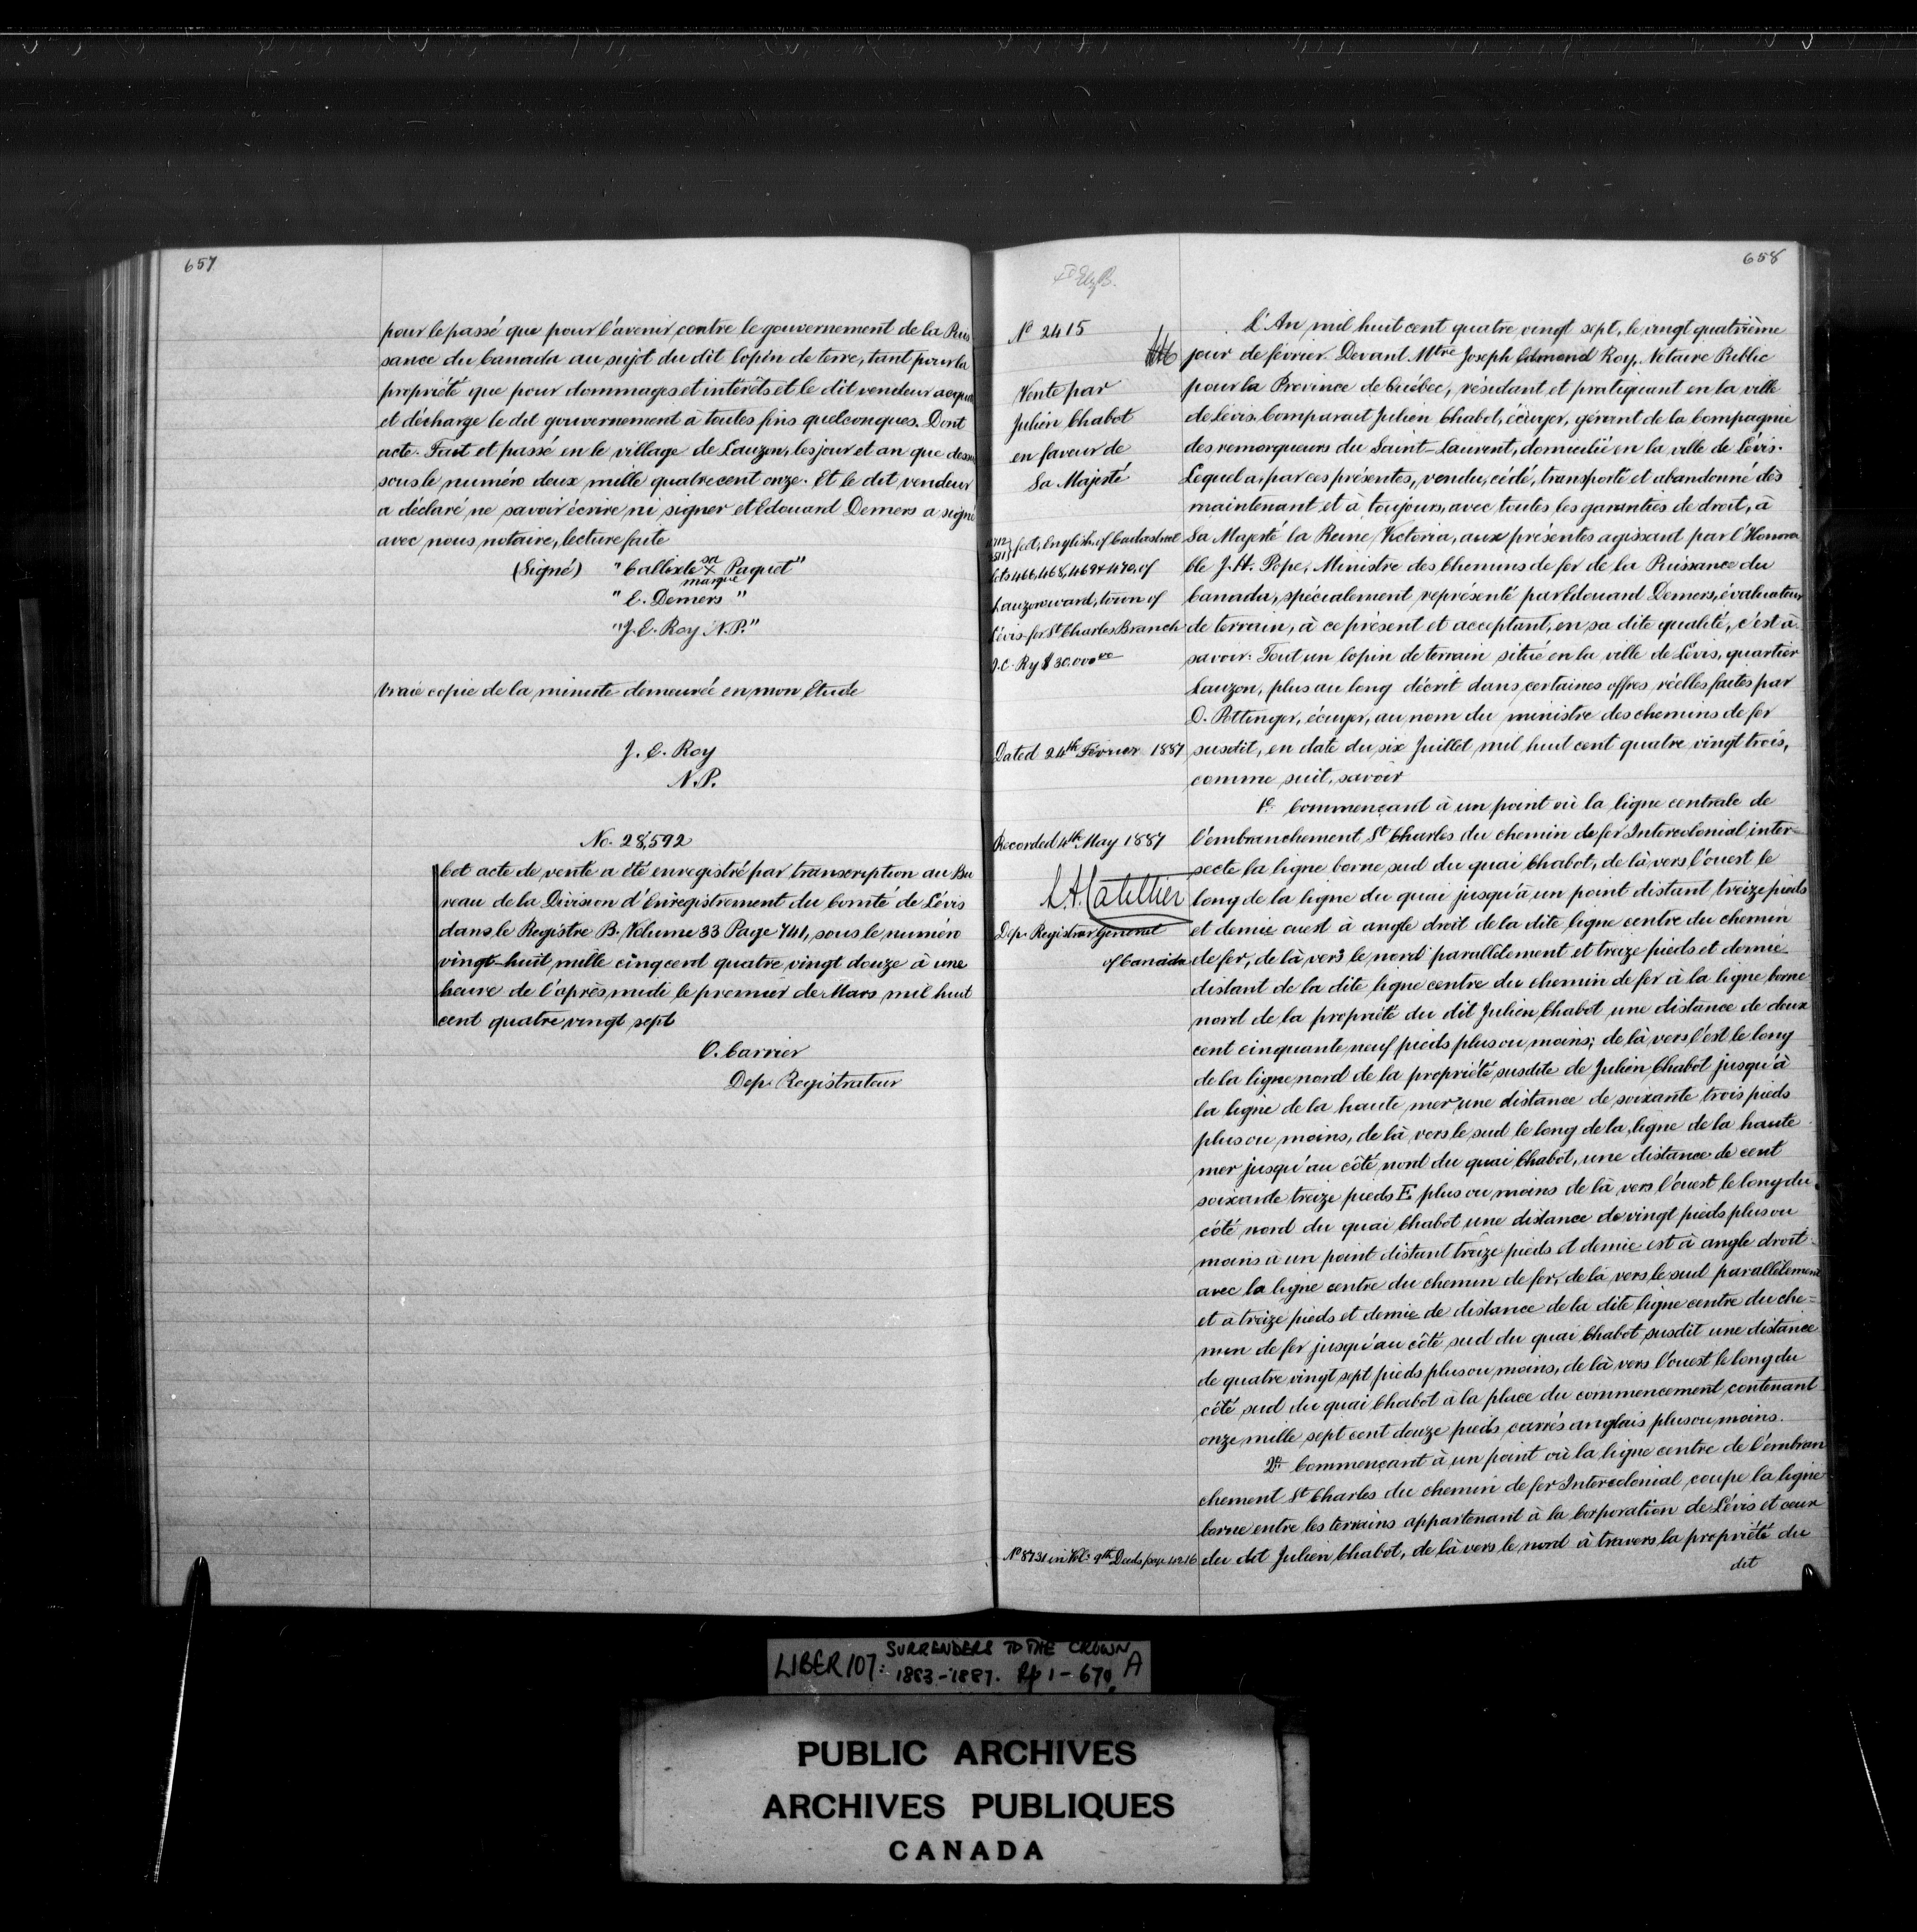 657
pour le passé que pour l'avenir contre le gouvernement de la Puis
sance du Canada au sujet du dit lopin de terre, tant pour la
propriété que pour dommages et intérêts et le dit vendeur acquitte
et décharge le dit gouvernement à toutes fins quelconques. Dont
acte. Fait et passé en le village de Lauzon, les jour et an que dessus
sous le numéro deux mille quatre cent onze. Et le dit vendeur
a déclaré ne savoir écrire ni signer et Edouard Demers a signé
avec nous notaire, lecture faite
(Signé) "Callixte sa X marque Paquet"
"E. Demers"
"J. E. Roy N.P."
Vraie copie de la minute demeurée en mon Etude
J. E. Roy
N.P.
No. 28,592
Cet acte de vente a été enregistré par transcription au Bu
reau de la Division d'Enregistrement du Comté de Lévis
dans le Registre B. Volume 33 Page 741, sous le numéro
vingt-huit mille cinq cent quatre vingt douze à une
heure de l'après midi le premier de Mars mil huit
cent quatre vingt sept
O. Carrier
Dep. Registrateur
658
No 2415
Vente par
Julien Chabot
en faveur de
Sa Majesté
feet, English, of Cadastral
lots 466, 468, 469 & 470, of
Lauzon ward, town of
Lévis for St Charles Branch
I.C. Ry $30,000 00
Dated 24th Février 1887
Recorded 4th May 1887
L. A. Catellier
Dep. Registrar General
of Canada
L'An mil huit cent quatre vingt sept, le vingt quatrième
jour de février. Devant Mtre Joseph Edmond Roy, Notaire Public
pour la Province de Québec, résidant et pratiquant en la ville
de Lévis. Comparait Julien Chabot, écuyer, gérant de la Compagnie
des remorqueurs du Saint-Laurent, domicilié en la ville de Lévis.
Lequel a, par ces présentes, vendu, cédé, transporté et abandonné dès
maintenant et à toujours, avec toutes les garanties de droit, à
Sa Majesté la Reine Victoria, aux présentes agissant par l'Honora
ble J. H. Pope, Ministre des Chemins de fer de la Puissance du
Canada, spécialement représenté par Edouard Demers, évaluateur
de terrain, à ce présent et acceptant, en sa dite qualité, c'est à
savoir: Tout un lopin de terrain situé en la ville de Lévis, quartier
Lauzon, plus au long décrit dans certaines offres réelles faites par
D. Pottinger, écuyer, au nom du ministre des chemins de fer
susdit, en date du six Juillet mil huit cent quatre vingt trois,
comme suit, savoir
1o Commençant à un point où la ligne centrale de
l'embranchement St Charles du chemin de fer Intercolonial inter-
secte la ligne borne sud du quai Chabot, de là vers l'ouest le
long de la ligne du quai jusqu'à un point distant treize pieds
et demie ouest à angle droit de la dite ligne centre du chemin
de fer, de là vers le nord parallèlement et treize pieds et demie
distant de la dite ligne centre du chemin de fer à la ligne borne
nord de la propriété du dit Julien Chabot une distance de deux
cent cinquante neuf pieds plus ou moins; de là vers l'est le long
de la ligne nord de la propriété susdite de Julien Chabot jusqu'à
la ligne de la haute mer une distance de soixante trois pieds
plus ou moins, de là vers le sud le long de la ligne de la haute
mer jusqu'au côté nord du quai Chabot, une distance de cent
soixante treize pieds E plus ou moins de là vers l'ouest le long du
côté nord du quai Chabot une distance de vingt pieds plus ou
moins à un point distant treize pieds et demie est à angle droit
avec la ligne centre du chemin de fer, de là vers le sud parallèlement
et à treize pieds et demie de distance de la dite ligne centre du che=
min de fer jusqu'au côté sud du quai Chabot susdit une distance
de quatre vingt sept pieds plus ou moins, de là vers l'ouest le long du
côté sud du quai Chabot à la place du commencement contenant
onze mille sept cent douze pieds carrés anglais plus ou moins.
2o Commençant à un point où la ligne centre de l'embran
chement St Charles du chemin de fer Intercolonial coupe la ligne
borne entre les terrains appartenant à la Corporation de Lévis et ceux
du dit Julien Chabot, de là vers le nord à travers la propriété du
dit
No 8731 in Vol: 9th Deeds page
LIBER 107: SURRENDERS TO THE CROWN.
1883-1887. Pp 1-670. A
PUBLIC ARCHIVES
ARCHIVES PUBLIQUES
CANADA